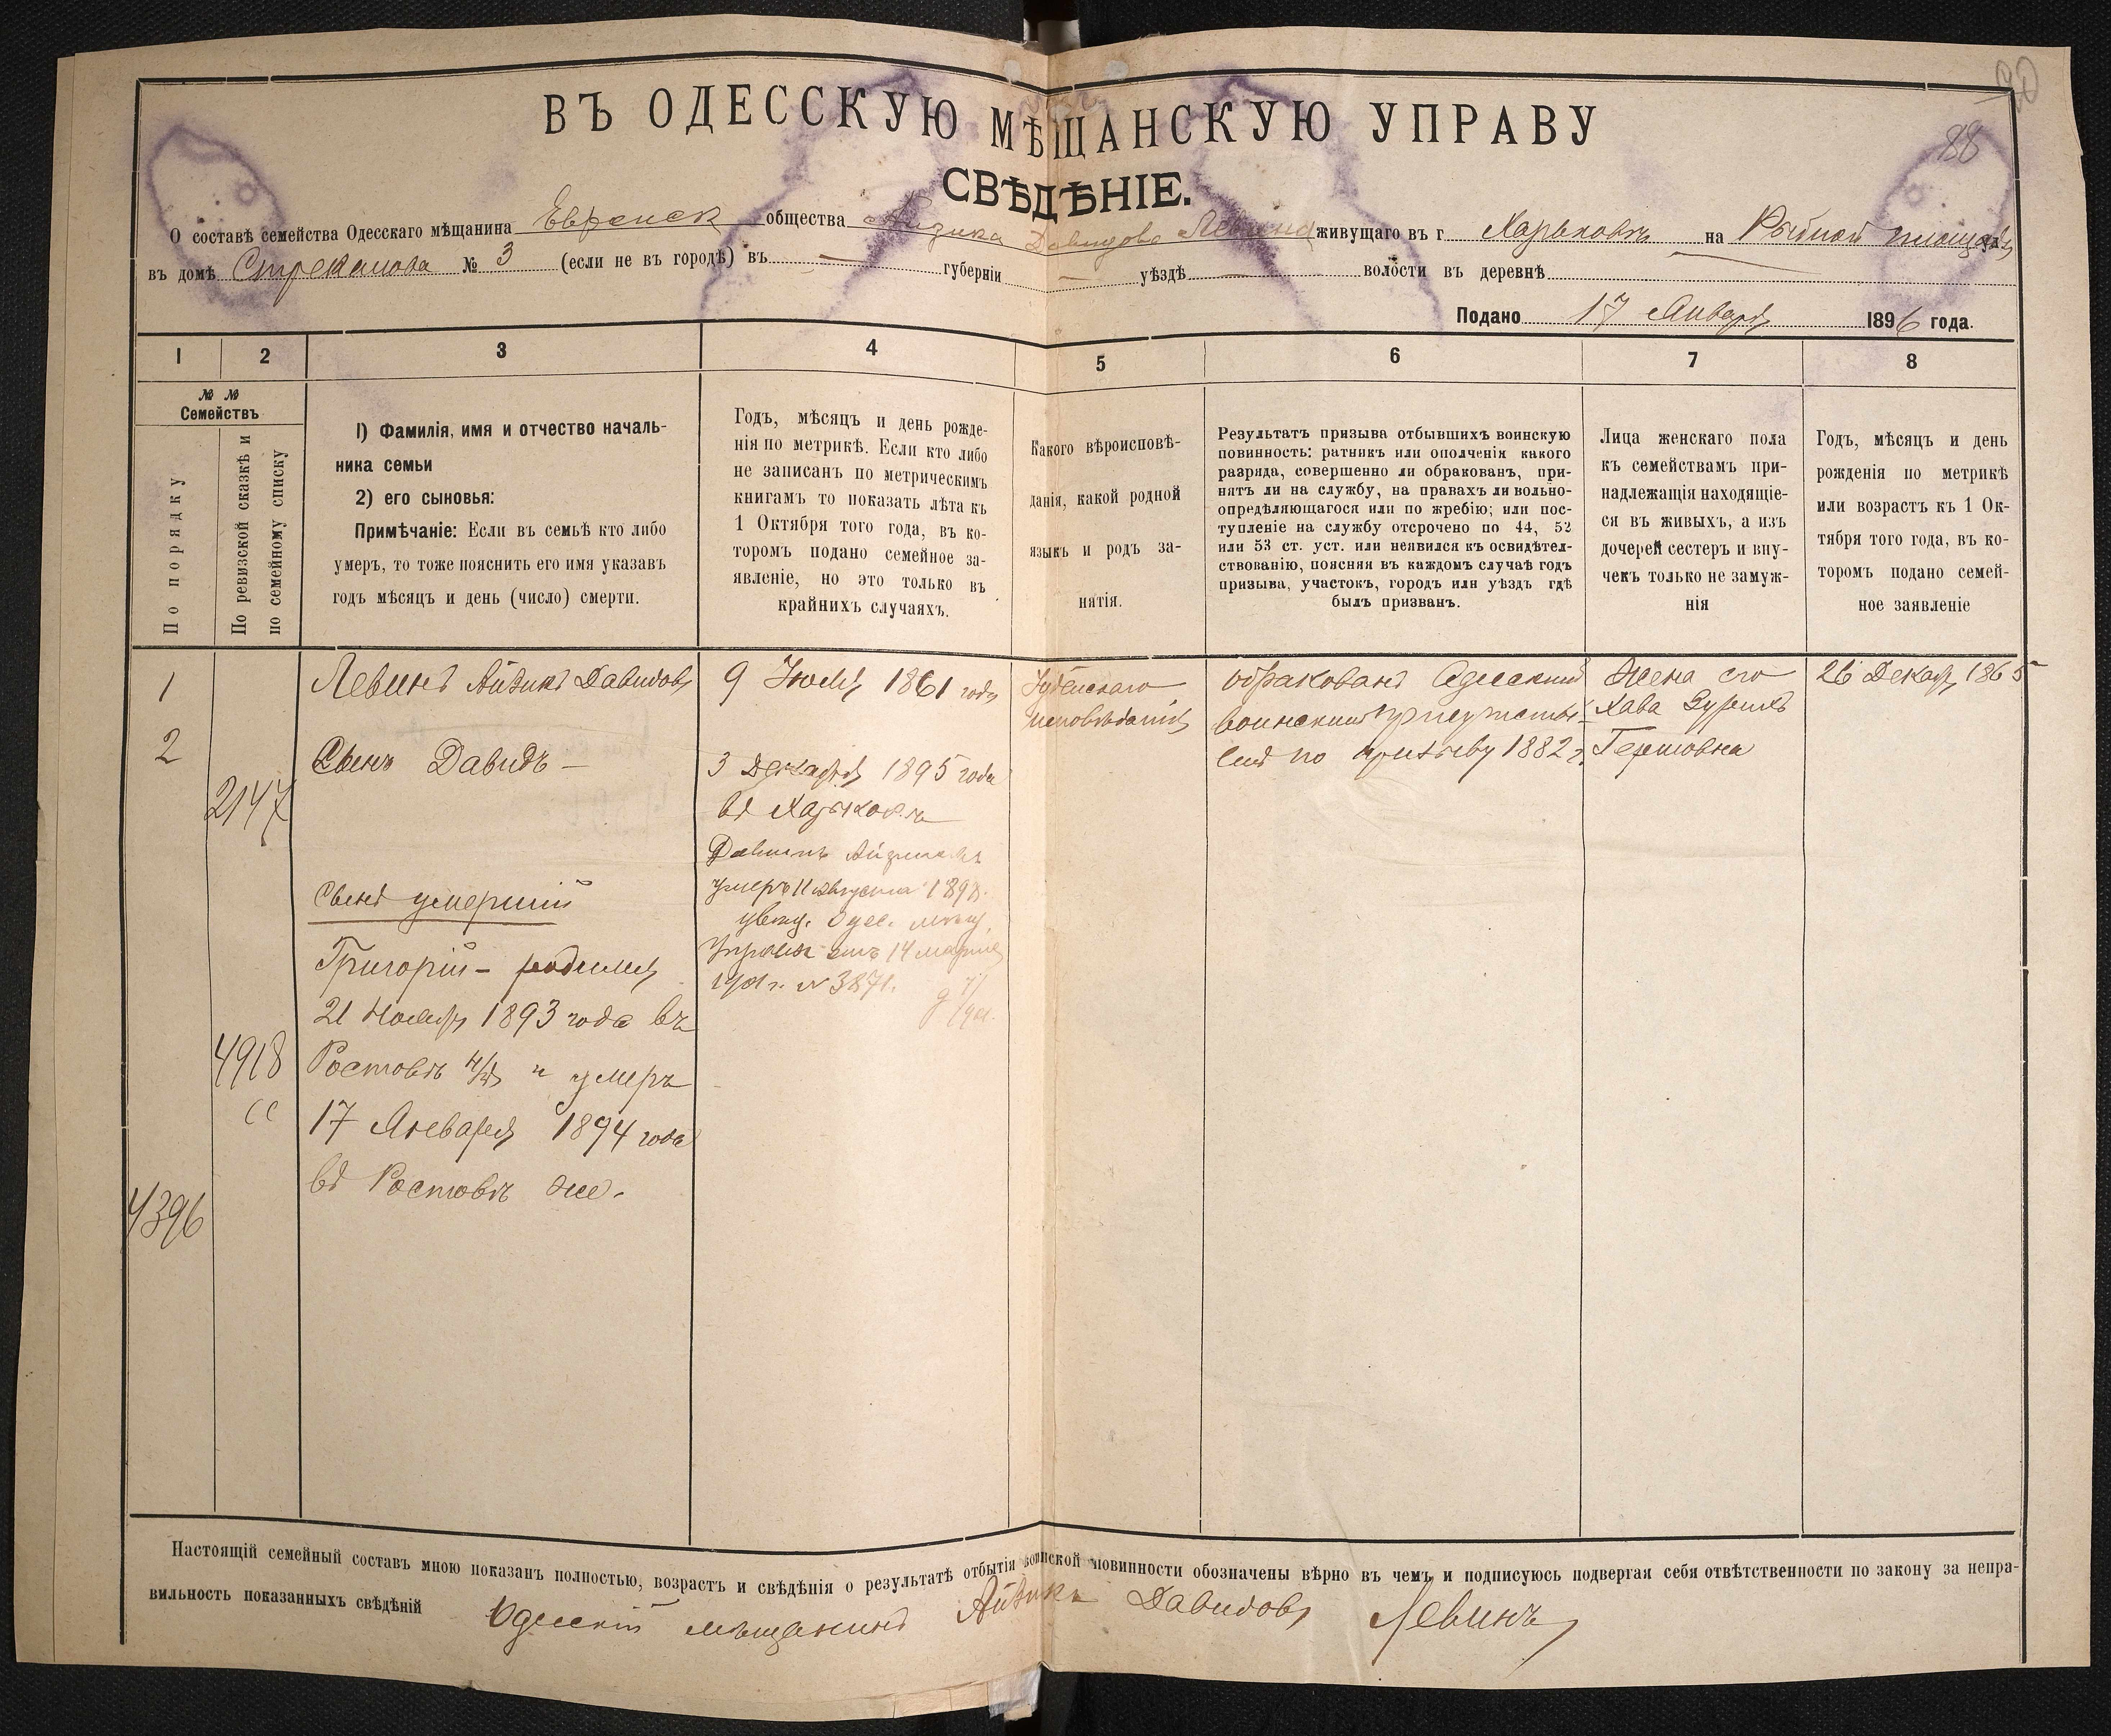 90
88
ВЪ ОДЕССКУЮ МѢЩАНСКУЮ УПРАВУ
СВѢДѢНІЕ.
О составѣ семейства Одесскаго мѣщанина Еврейск общества Айзика Давидова Левина живущаго въ г Харьковѣ на Рыбной площади
въ домѣ Стрекалова № 3 (если не въ городѣ) въ — губерніи — уѣздѣ — волости въ деревнѣ
Подано 17 Января 1896 года.
1 2 3 4 5 6 7 8
№ № Семействъ
По порядку
По ревизской сказкѣ и
по семейному списку
1) Фамилія, имя и отчество началь-
ника семьи
2) его сыновья:
Примѣчаніе: Если въ семьѣ кто либо
умеръ, то тоже пояснить его имя указавъ
годъ мѣсяцъ и день (число) смерти.
Годъ, мѣсяцъ и день рожде-
нія по метрикѣ. Если кто либо
не записанъ по метрическимъ
книгамъ то показать лѣта къ
1 Октября того года, въ ко-
торомъ подано семейное за-
явленіе, но это только въ
крайнихъ случаяхъ.
Какого вѣроисповѣ-
данія, какой родной
языкъ и родъ за-
нятія.
Результатъ призыва отбывшихъ воинскую
повинность: ратникъ или ополченія какого
разряда, совершенно ли обракованъ, при-
нятъ ли на службу, на правахъ ли вольно-
опредѣляющагося или по жребію; или пос-
тупленіе на службу отсрочено по 44, 52
или 53 ст. уст. или неявился къ освидѣтел-
ствованію, поясняя въ каждомъ случаѣ годъ
призыва, участокъ, городъ или уѣздъ гдѣ
былъ призванъ.
Лица женскаго пола
къ семействамъ при-
надлежащія находящіе-
ся въ живыхъ, а изъ
дочерей сестеръ и вну-
чекъ только не замуж-
нія
Годъ, мѣсяцъ и день
рожденія по метрикѣ
или возрастъ къ 1 Ок-
тября того года, въ ко-
торомъ подано семей-
ное заявленіе
1
2
2147
4918
сс
4396
Левинъ Айзикъ Давидовъ
Сынъ Давидъ —
Сынъ умершій
Григорій — родился
21 Ноября 1893 года въ
Ростовѣ н/Д и умеръ
17 Января 1894 года
въ Ростовѣ же.
9 Іюля 1861 года
3 Декабря 1895 года
въ Харьковѣ
Давидъ Айзиковъ
умеръ 11 августа 1898.
увѣд. Одес. мѣщ.
Управы отъ 14 марта
1901 г. № 3871.
Іудейскаго
исповѣданія
обракованъ Одесскимъ
воинскимъ присутстві-
емъ по призыву 1882 г.
Жена его
Хава Зурихъ
Гершовна
26 Декабр. 1865
Настоящій семейный составъ мною показанъ полностью, возрастъ и свѣдѣнія о результатѣ отбытія воинской повинности обозначены вѣрно въ чемъ и подписуюсь подвергая себя отвѣтственности по закону за непра-
вильность показанныхъ свѣдѣній Одесскій мѣщанинъ Айзикъ Давидовъ Левинъ